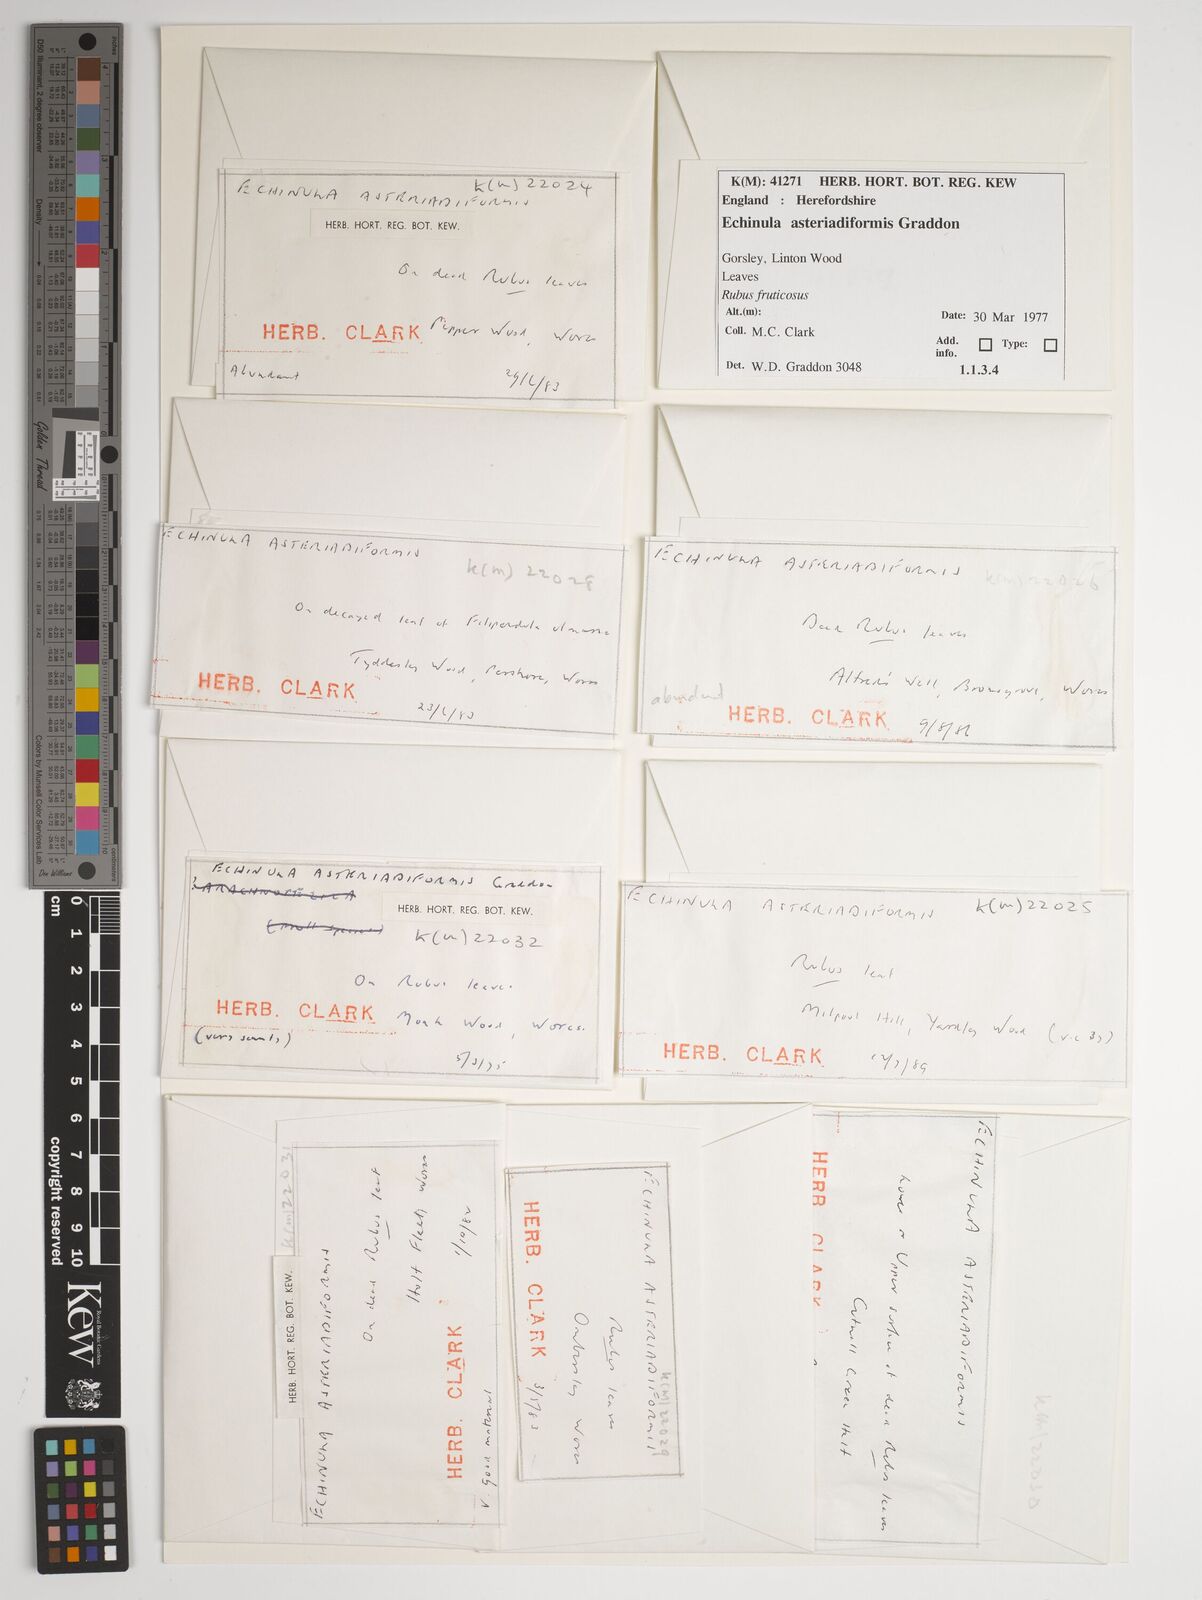 ECHINULA ASTERIADIFORMIS
K(M) 22024
HERB. HORT. REG. BOT. KEW.
On dead Rubus leaves
HERB. CLARK
Pepper Wood, Worcs
Abundant
K(M): 41271 HERB. HORT. BOT. REG. KEW
England : Herefordshire
Echinula asteriadiformis Graddon
Gorsley, Linton Wood
Leaves
Rubus fruticosus
Alt.(m):
Date: 30 Mar 1977
Coll. M.C. Clark
Add. info.
Type:
Det. W.D. Graddon 3048
1.1.3.4
ECHINULA ASTERIADIFORMIS
K(M) 22028
On decayed leaf of Filipendula ulmaria
Tyddesley Wood, Pershore, Worcs
HERB. CLARK
ECHINULA ASTERIADIFORMIS
K(M) 22026
Dead Rubus leaves
Alfred's Well, Bromsgrove, Worcs
abundant
HERB. CLARK
ECHINULA ASTERIADIFORMIS Graddon
HERB. HORT. REG. BOT. KEW.
K(M) 22032
On Rubus leaves
HERB. CLARK
Monk Wood, Worcs.
ECHINULA ASTERIADIFORMIS
K(M) 22025
Rubus leaf
Yardley Wood
HERB. CLARK
HERB. HORT. REG. BOT. KEW.
ECHINULA ASTERIADIFORMIS
On dead Rubus leaf
Holt Fleet, Worcs
1/10/82
HERB. CLARK
v. good material
ECHINULA ASTERIADIFORMIS
K(M) 22029
Rubus leaves
Ombersley Worcs
HERB. CLARK
ECHINULA ASTERIADIFORMIS
Lower or Upper surface of dead Rubus leaves
Green Holt
HERB. CLARK
K(M) 22030
D50 Illuminant, 2 degree observer
Density
Golden Thread
Colors by Munsell Color Services Lab
Don Williams
inches
centimeters
cm
0
1
2
3
4
5
6
7
8
9
10
copyright reserved
Royal Botanic Gardens
Kew